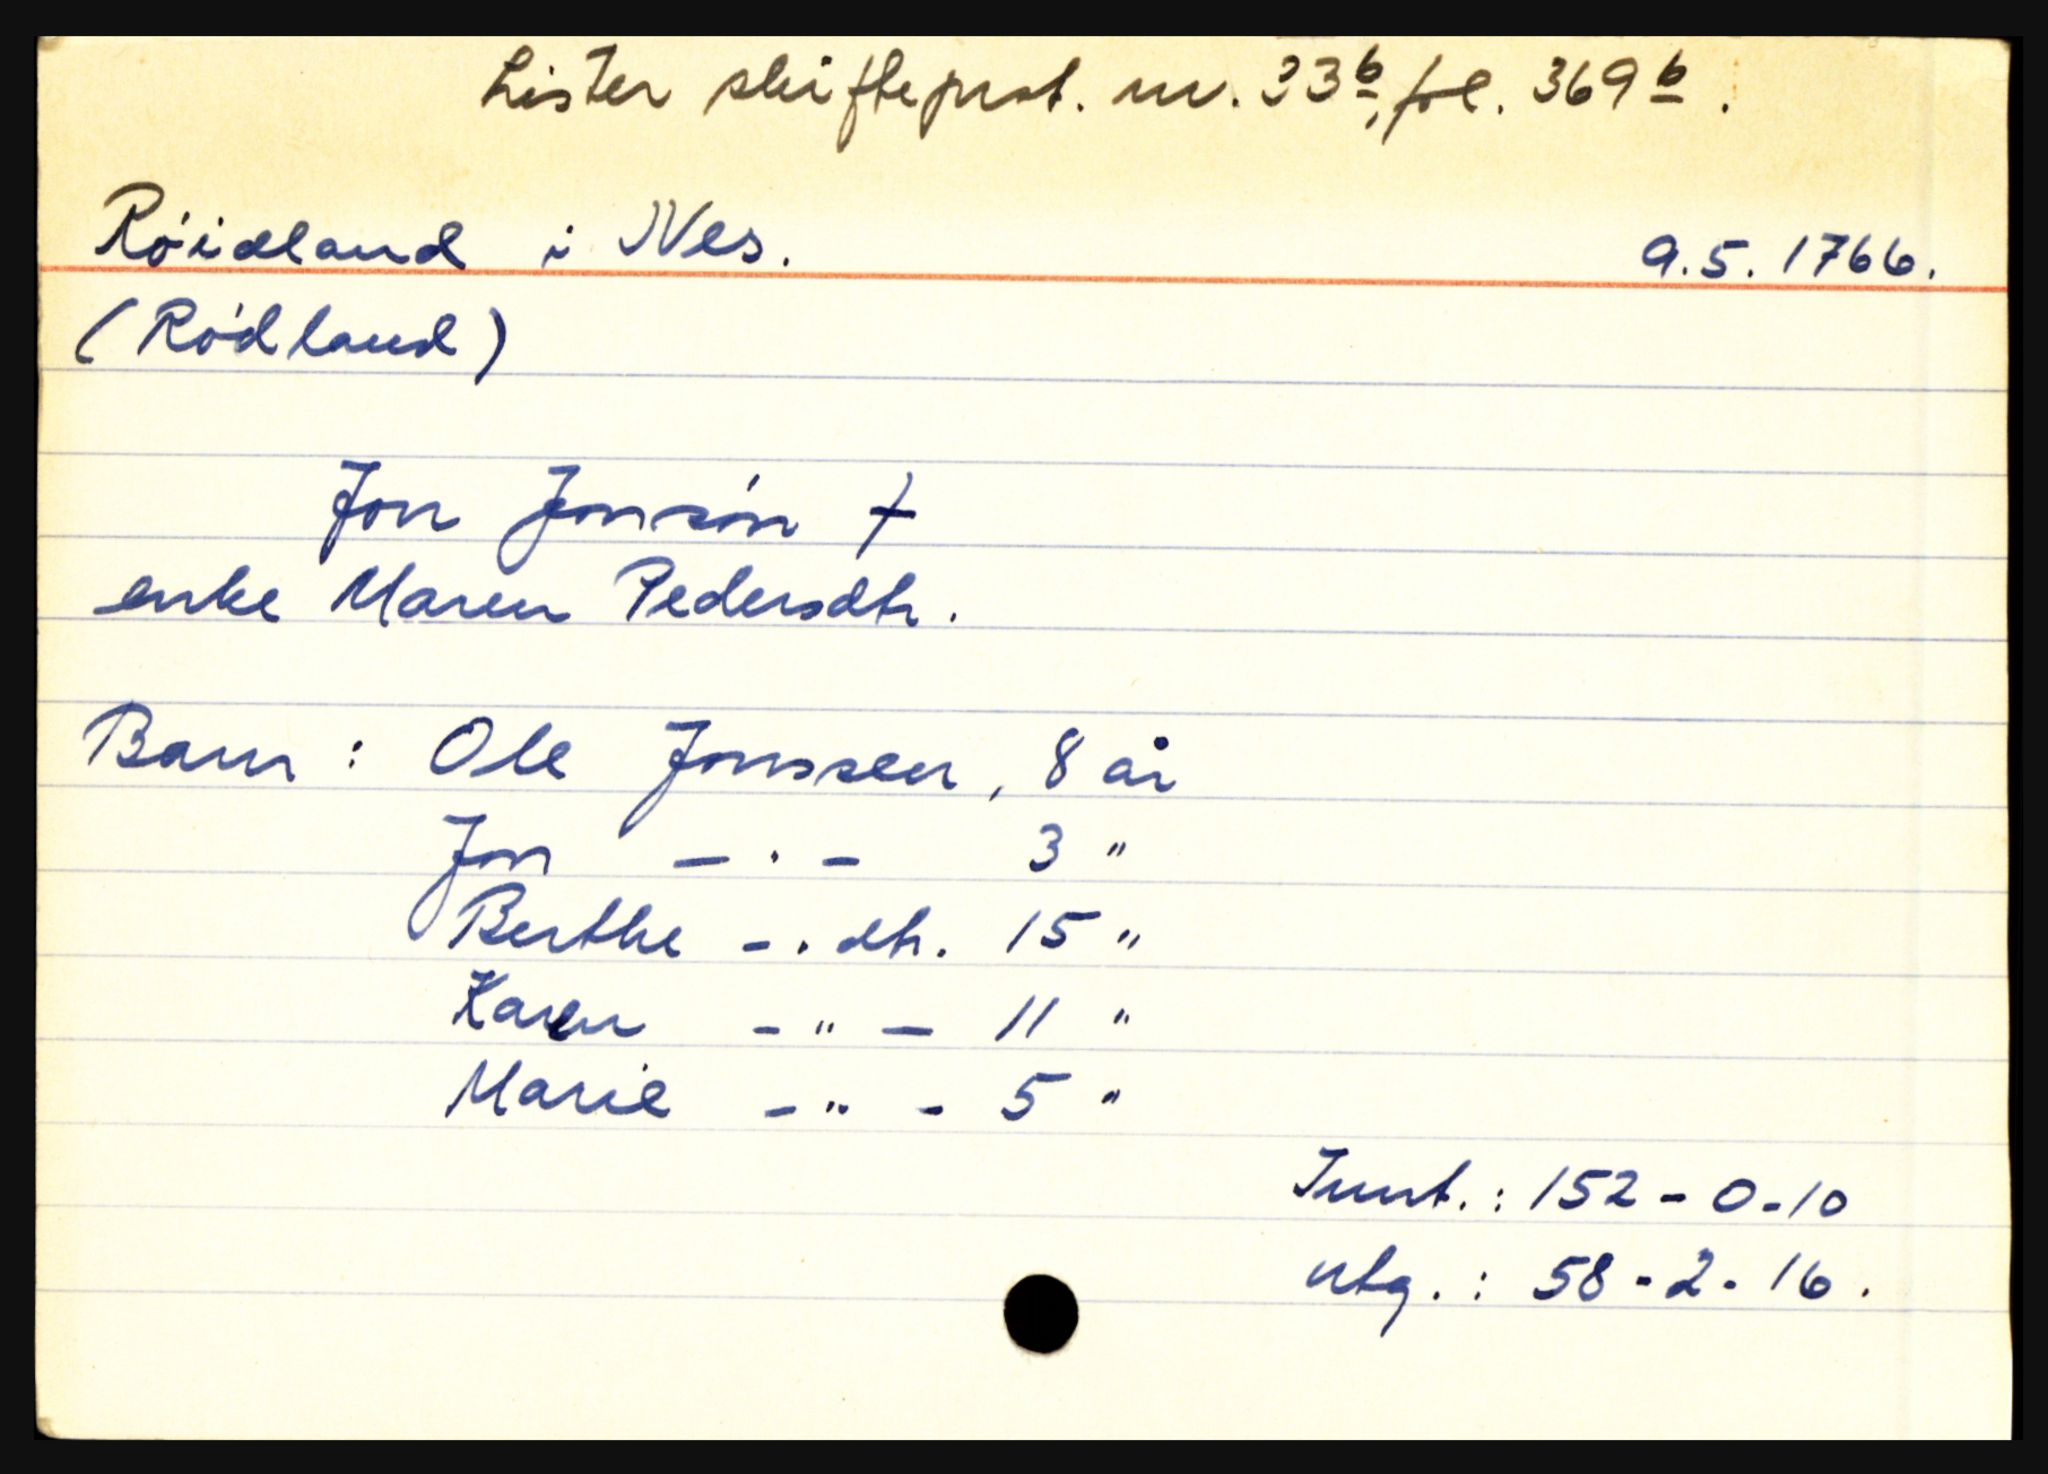 Lister skifteprot. nr. 33b, fol. 369b.
Röidland i Nes. 9.5.1766.
(Rödland)
Jon Jonsön †
enke Maren Pedersdtr.
Barn: Ole Jonssen, 8 år
Jon - . - 3 "
Berthe - . dtr. 15 "
Karen - " - 11 "
Marie - " - 5 "
Innt.: 152-0-10
utg.: 58-2-16.